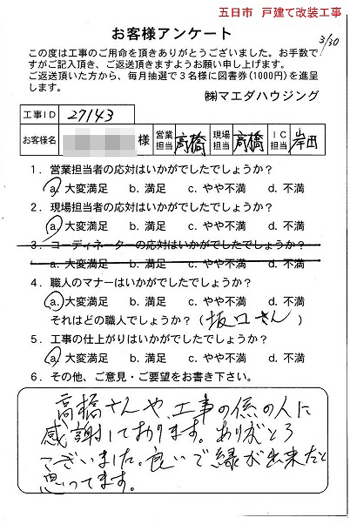 五日市 戸建て改装工事
お客様アンケート
3/30
この度は工事のご用命を頂きありがとうございました。お手数で
すがご記入頂き、ご返送頂きますようお願い申し上げます。
ご返送頂いた方から、毎月抽選で３名様に図書券(1000円)を進呈
します。
㈱マエダハウジング
工事ＩＤ 27143
お客様名 様 営業担当 高橋 現場担当 高橋 ＩＣ担当 岸田
１．営業担当者の応対はいかがでしたでしょうか？
a. 大変満足 b. 満足 c. やや不満 d. 不満
２．現場担当者の応対はいかがでしたでしょうか？
a. 大変満足 b. 満足 c. やや不満 d. 不満
３．コーディネーターの応対はいかがでしたでしょうか？
a. 大変満足 b. 満足 c. やや不満 d. 不満
４．職人のマナーはいかがでしたでしょうか？
a. 大変満足 b. 満足 c. やや不満 d. 不満
それはどの職人でしょうか？（坂口さん）
５．工事の仕上がりはいかがでしたでしょうか？
a. 大変満足 b. 満足 c. やや不満 d. 不満
６．その他、ご意見・ご要望をお書き下さい。
高橋さんや、工事の係の人に
感謝しております。ありがとう
ございました。良いで縁が出来たと
思ってます。